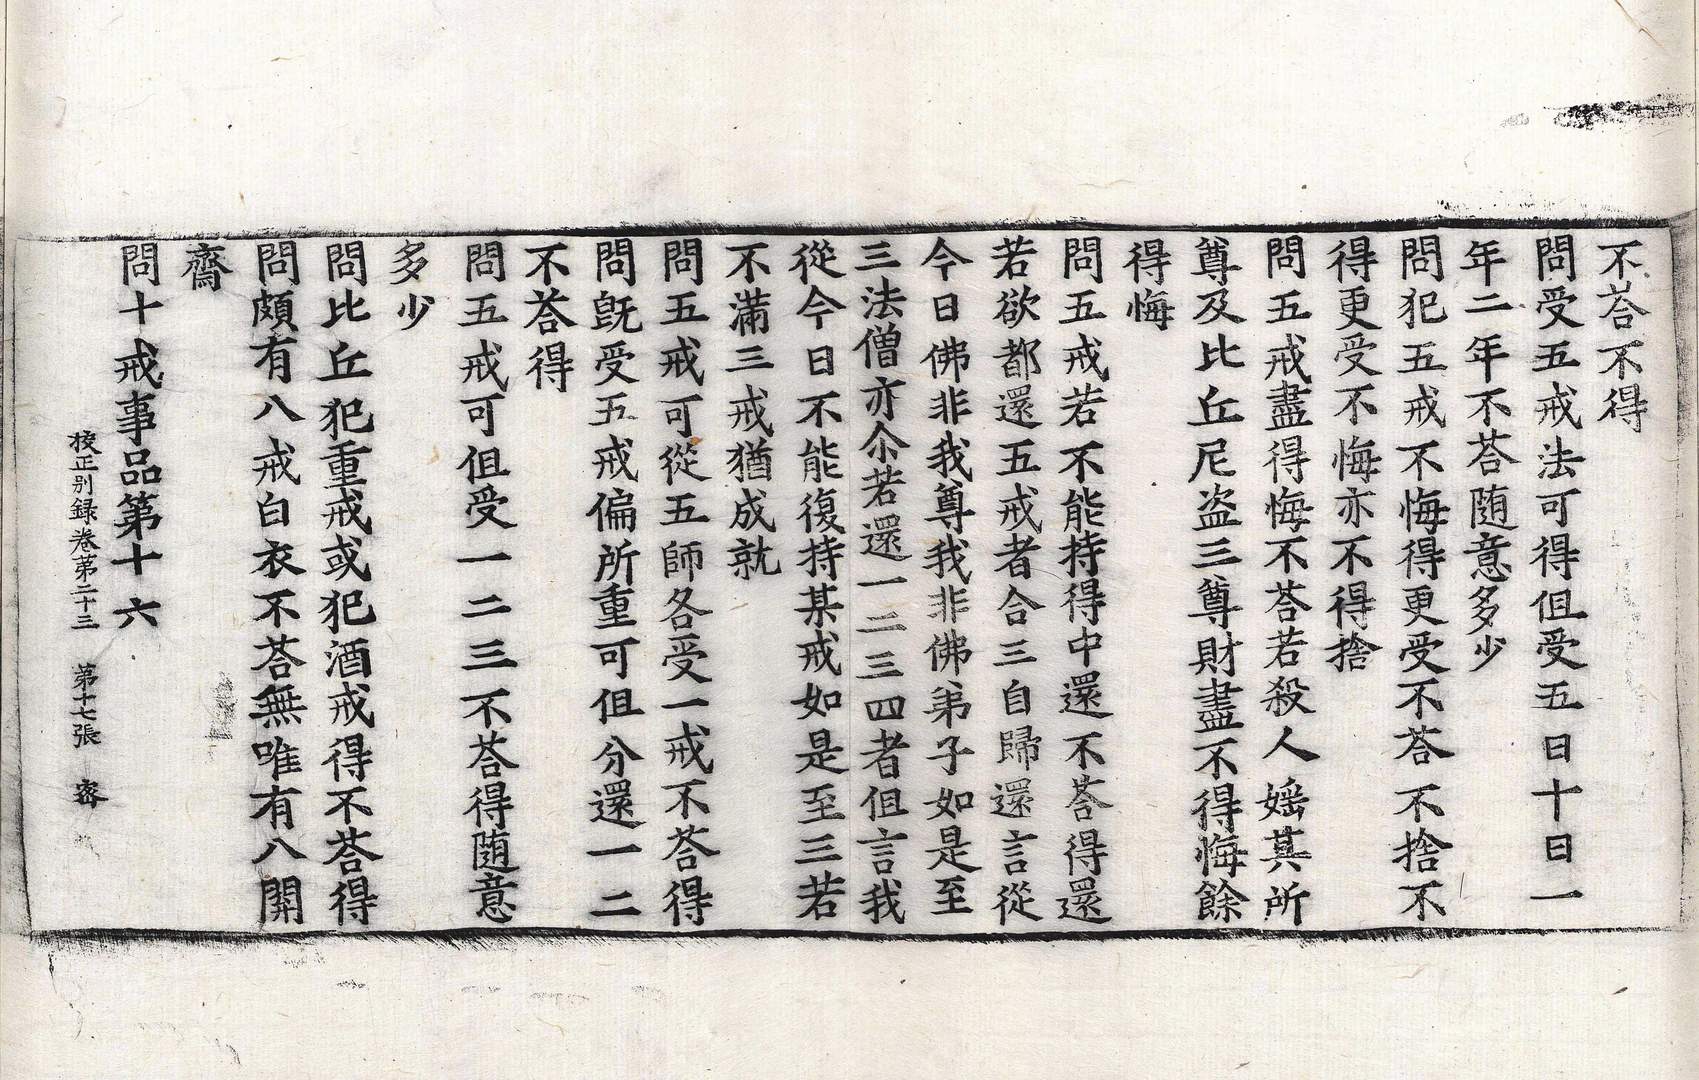 不荅不得
問受五戒法可得伹受五日十日一
年二年不荅随意多少
問犯五戒不悔得更受不荅不捨不
得更受不悔亦不得捨
問五戒盡得悔不荅若殺人婬其所
尊及比丘尼盗三尊財盡不得悔餘
得悔
問五戒若不能持得中還不荅得還
若欲都還五戒者合三自歸還言從
今日佛非我尊我非佛弟子如是至
三法僧亦尒若還一二三四者伹言我
從今日不能復持某戒如是至三若
不滿三戒猶成就
問五戒可從五師各受一戒不荅得
問旣受五戒偏所重可伹分還一二
不荅得
問五戒可伹受一二三不荅得随意
多少
問比丘犯重戒或犯酒戒得不荅得
問頗有八戒白衣不荅無唯有八開
齋
問十戒事品第十六
校正别録卷第二十三 第十七張 宻